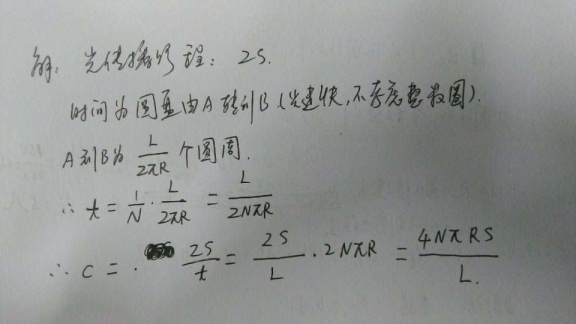 解: 光传播路程: 2S.
时间为圆盘由A转到B(光速快,不考虑整数圈).
A到B为 L/2πR 个圆周.
∴ t = 1/N · L/2πR = L/2NπR
∴ c = · 2S/t = 2S/L · 2NπR = 4NπRS/L.